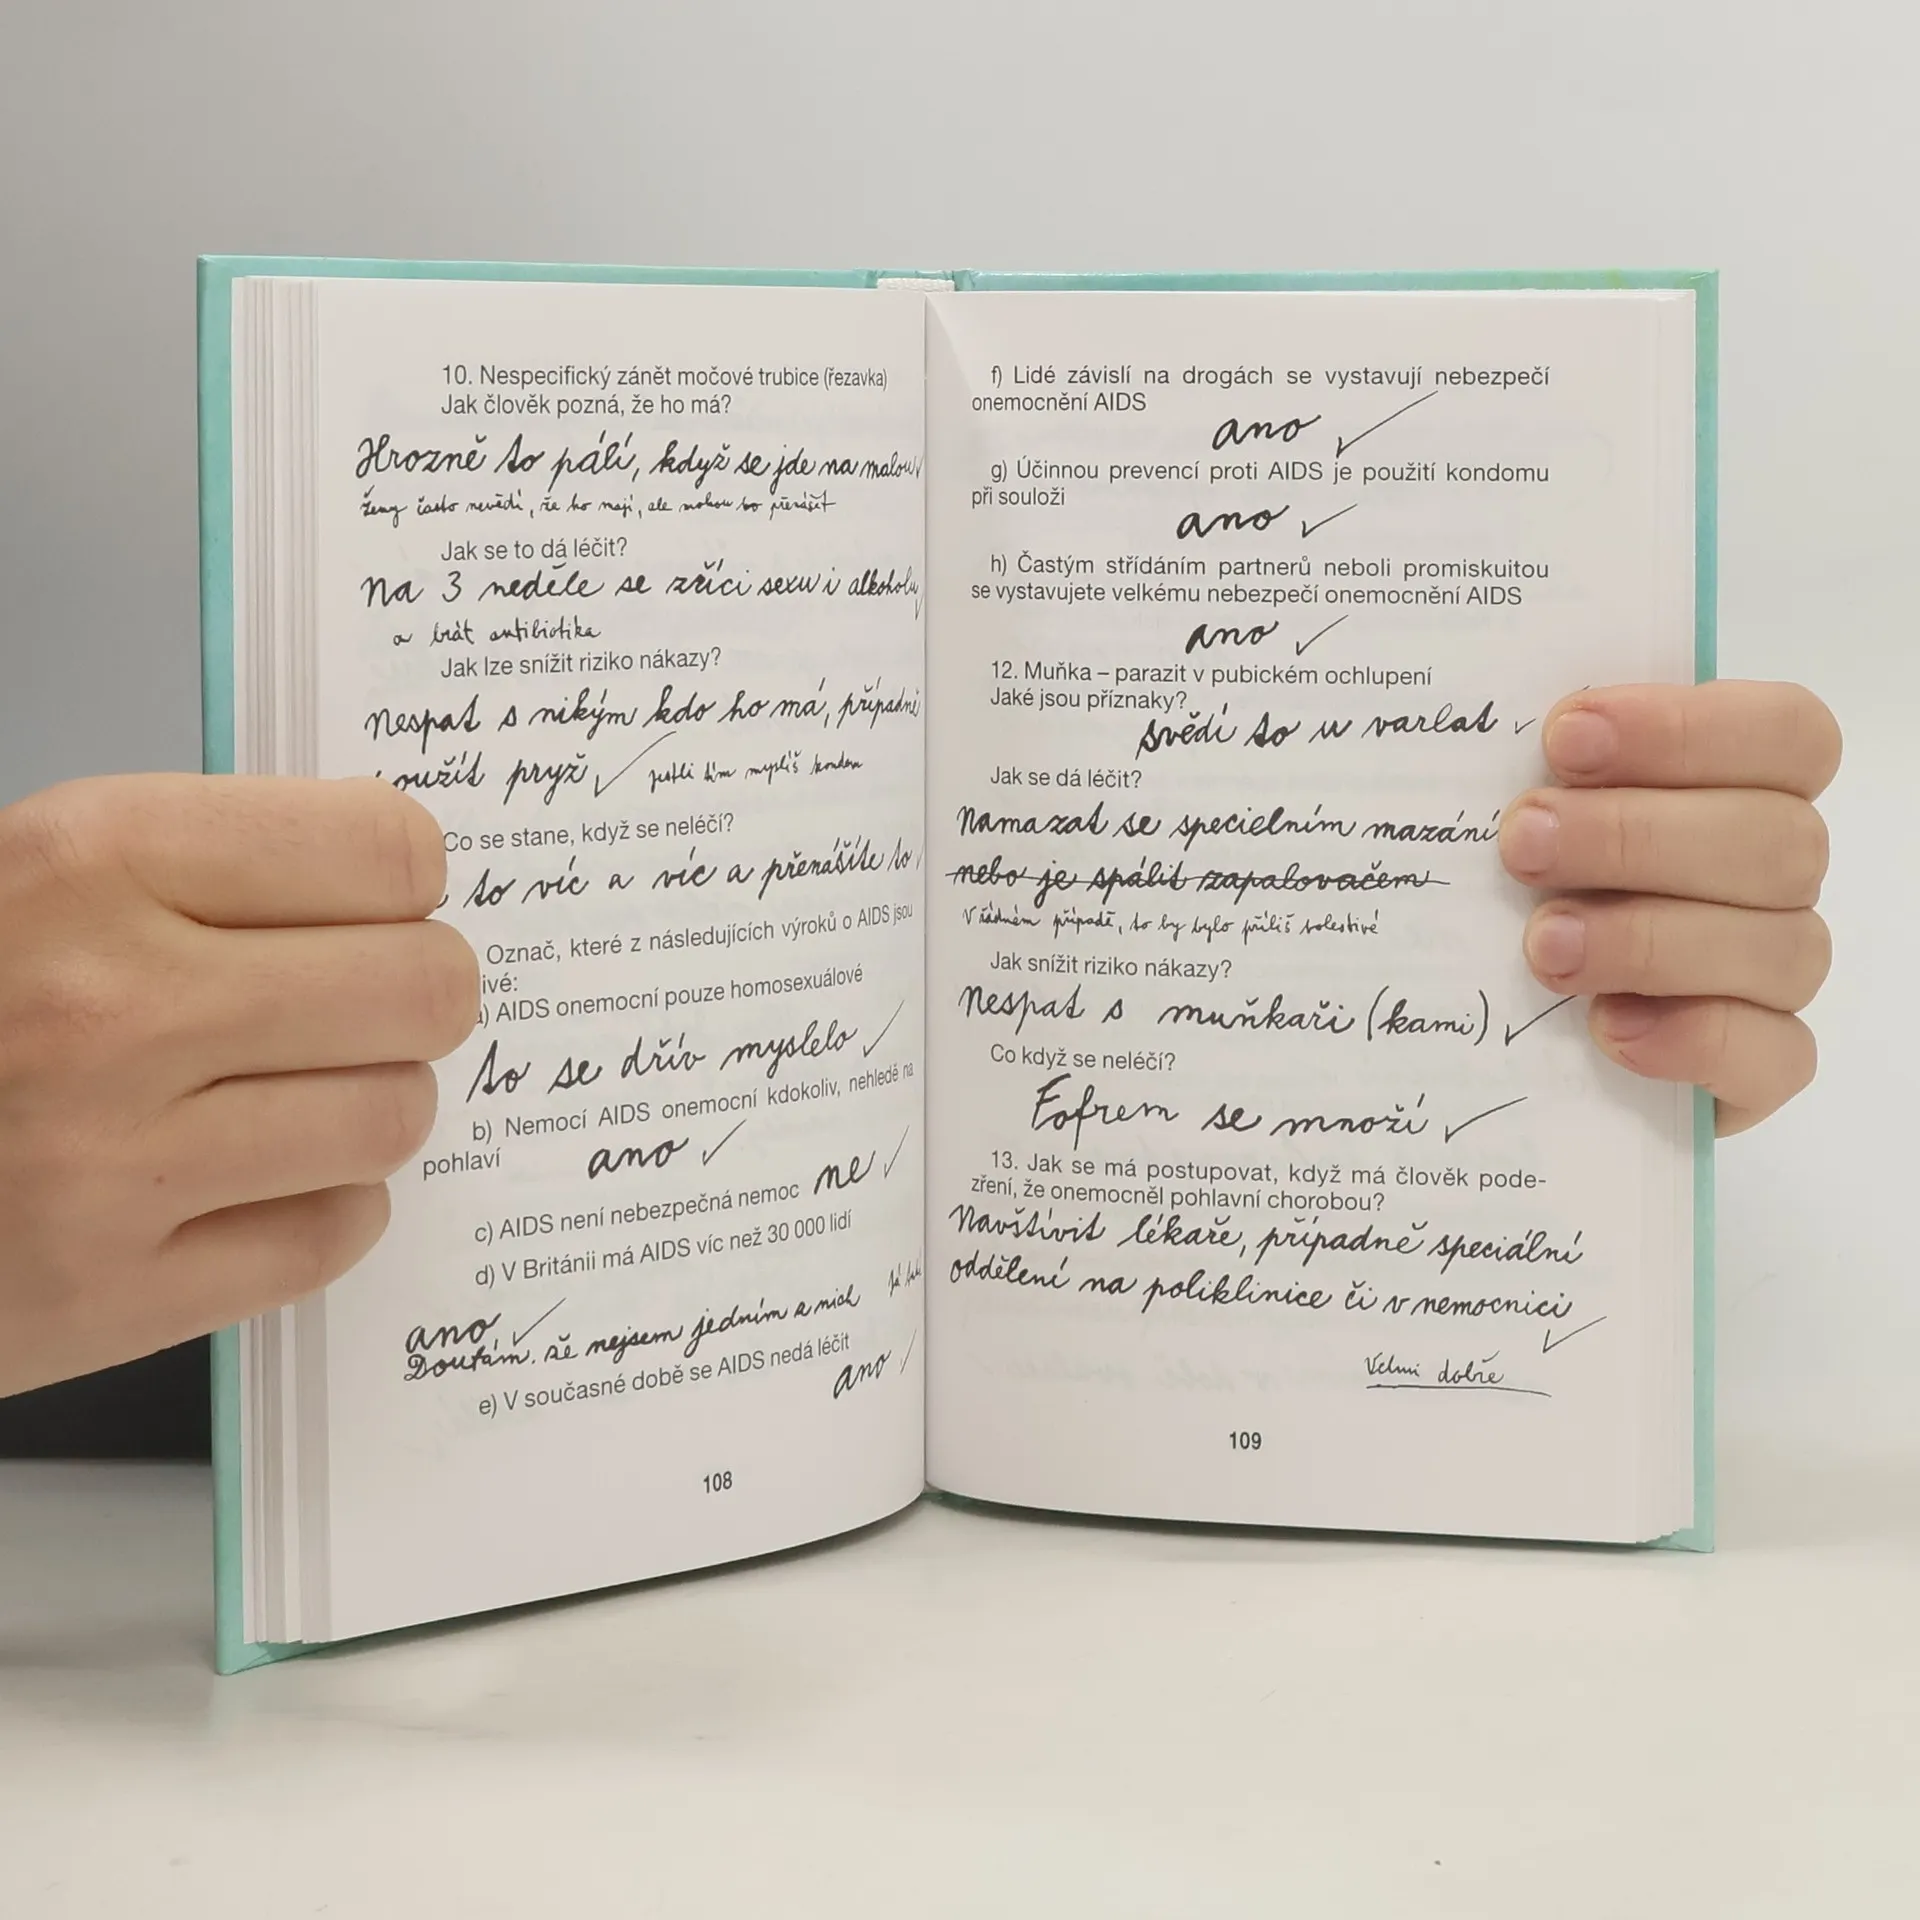 10. Nespecifický zánět močové trubice (řezavka)
Jak člověk pozná, že ho má?
Hrozně to pálí, když se jde na malou
ženy často nevědí, že ho mají, ale mohou ho přenášet
Jak se to dá léčit?
Na 3 neděle se zříci sexu i alkoholu
a brát antibiotika
Jak lze snížit riziko nákazy?
Nespat s nikým kdo ho má, případně
oužít pryž jestli tím myslíš kondom
Co se stane, když se neléčí?
to víc a víc a přenášíte to
Označ, které z následujících výroků o AIDS jsou
ivé:
a) AIDS onemocní pouze homosexuálové
to se dřív myslelo
b) Nemocí AIDS onemocní kdokoliv, nehledě na
pohlaví ano
c) AIDS není nebezpečná nemoc ne
d) V Británii má AIDS víc než 30 000 lidí
ano
Doufám, že nejsem jedním z nich Já
e) V současné době se AIDS nedá léčit
ano
108
f) Lidé závislí na drogách se vystavují nebezpečí
onemocnění AIDS
ano
g) Účinnou prevencí proti AIDS je použití kondomu
při souloži
ano
h) Častým střídáním partnerů neboli promiskuitou
se vystavujete velkému nebezpečí onemocnění AIDS
ano
12. Muňka – parazit v pubickém ochlupení
Jaké jsou příznaky?
svědí to u varlat
Jak se dá léčit?
Namazat se specielním mazání
nebo je spálit zapalovačem
V žádném případě, to by bylo příliš bolestivé
Jak snížit riziko nákazy?
Nespat s muňkaři (kami)
Co když se neléčí?
Fofrem se množí
13. Jak se má postupovat, když má člověk pode-
zření, že onemocněl pohlavní chorobou?
Navštívit lékaře, případně speciální
oddělení na poliklinice či v nemocnici
Velmi dobře
109